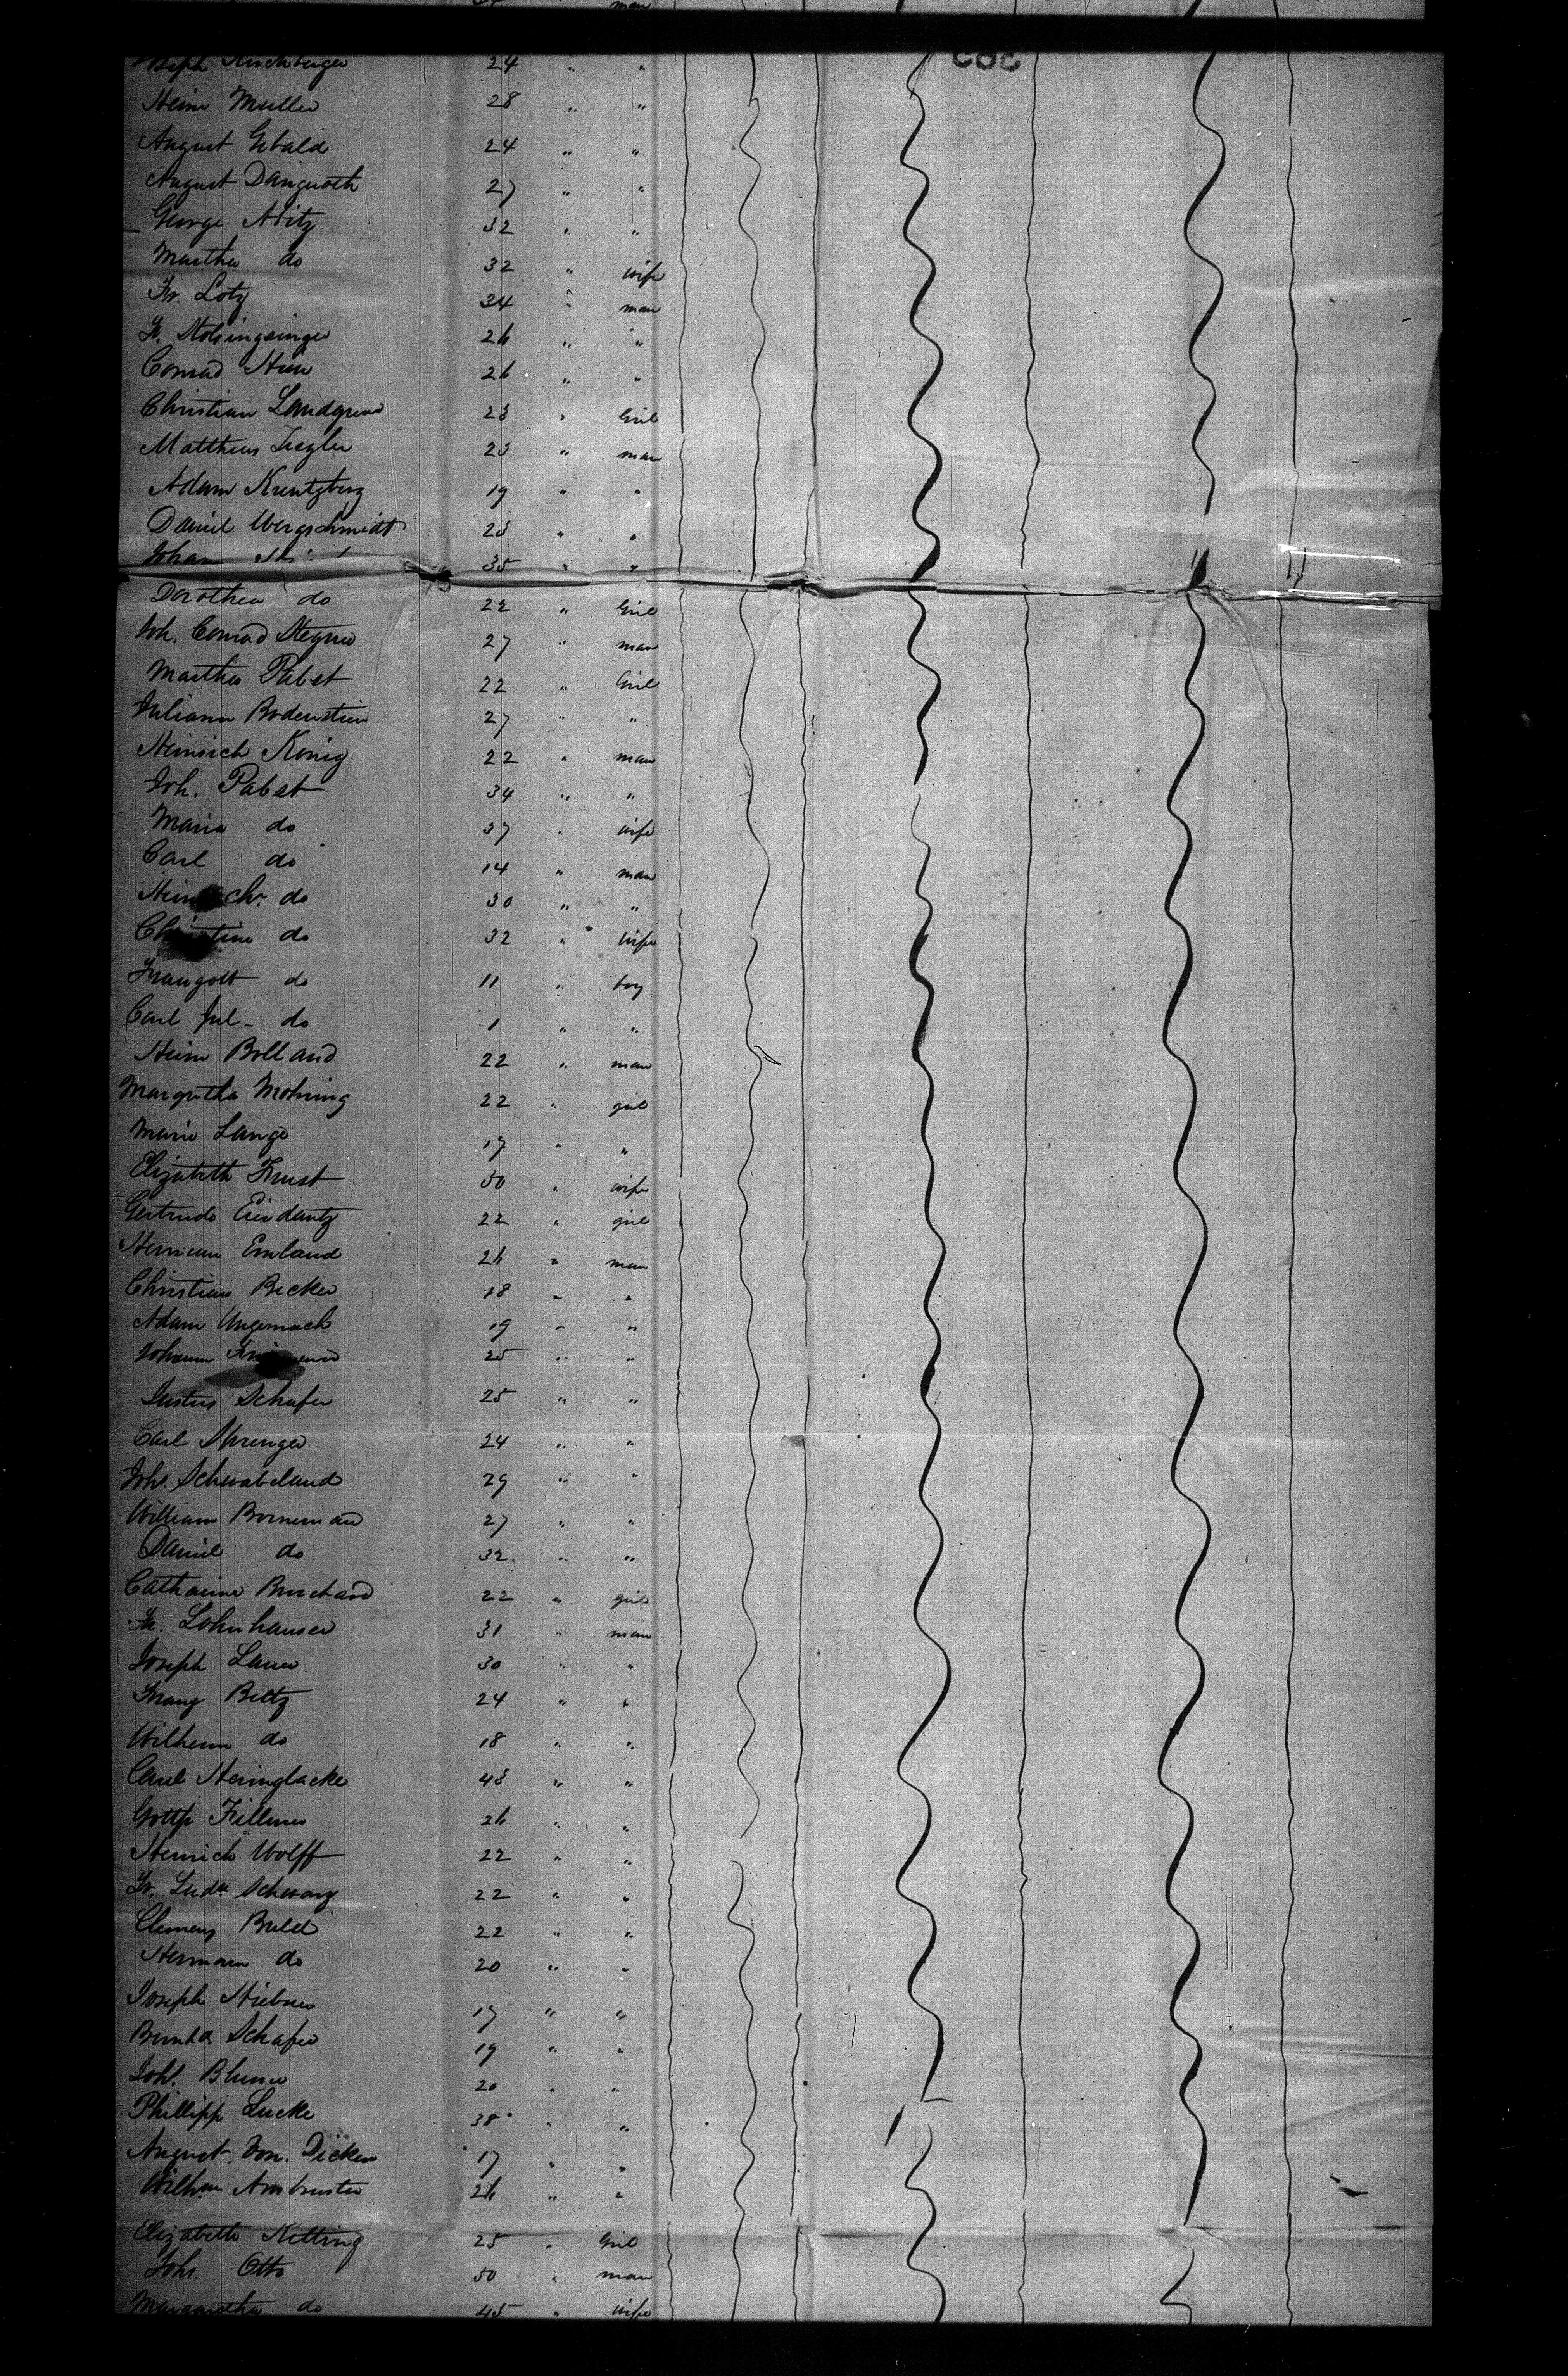 man
Joseph Kirchberger 24 " "
Heinr Muller 28 " "
August Gebald 24 " "
August Dangroth 27 " "
George Nitz 32 " "
Martha do 32 " wife
Fr. Lotz 34 " man
26 " "
Conrad 26 " "
Christian Landgrend 23 " Girl
Matthias Ziegler 23 " man
Adam Kreutzberg 19 " "
Daniel Wergschmidt 23 " "
Johann 35 " "
Dorothea do 22 " Girl
Joh. Conrad Stegner 27 " man
Martha Pabst 22 " Girl
Juliana Bodenstein 27 " "
Heinrich König 22 " man
Joh. Pabst 34 " "
Maria do 37 " wife
Carl do 14 " man
Heinrich do 30 " "
Christine do 32 " wife
Traugott do 11 " boy
Carl Jul- do 1 " "
Heinr Bolland 22 " man
Margretha Mohring 22 " girl
Marie Lange 17 " "
Elizabeth Trust 50 " wife
Gertrude 22 " girl
Herman Emland 26 " man
Christian Becker 18 " "
Adam Ungemach 19 " "
Johann 25 " "
Justus Schafer 25 " "
Carl Sprenger 24 " "
Joh. Schwabeland 29 " "
William Borneman 27 " "
Daniel do 32 " "
Catharine Burchard 22 " girl
Fr. Lohnhauser 31 " man
Joseph Lauer 30 " "
Franz Beltz 24 " "
Wilhelm do 18 " "
Carl Heringlacke 43 " "
Gottfr Fillmer 26 " "
Heinrich Wolff 22 " "
Fr. Ludw Schwarz 22 " "
Clemens Buld 22 " "
Hermann do 20 " "
Joseph Hiebner 17 " "
Bernhd. Schafer 19 " "
Joh. Blume 20 " "
Phillipp Lucke 38 " "
August Von. Dicken 17 " "
Wilhm Ambruster 26 " "
Elizabeth Ketting 25 " Girl
Joh. Otto 50 " man
Margaretha do 45 " wife